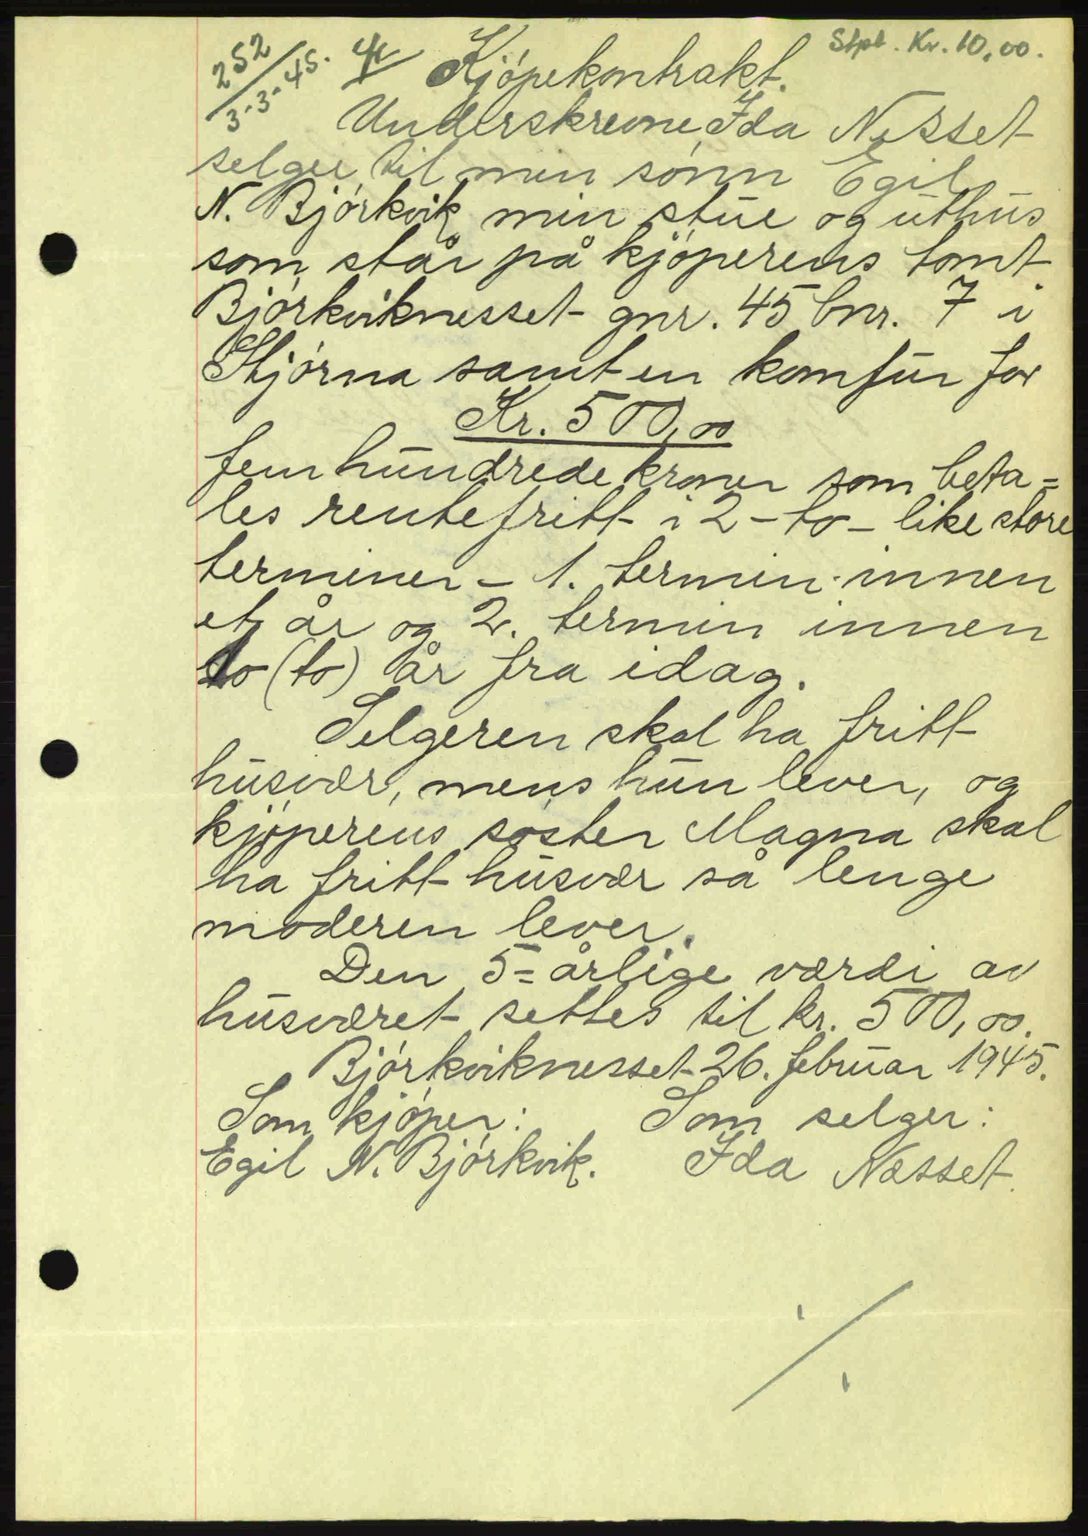 Stpt. Kr. 10.00.
252
3-3-45.
Kjöpekontrakt.
Underskrevne Ida Næsset
selger til min sönn Egil
N. Björkvik min stue og uthus
som står på kjöperens tomt
Björkviknesset gnr. 45 bnr. 7 i
Stjörna samt en komfur for
Kr. 500,00
fem hundrede kroner som beta=
les rentefritt i 2 - to - like store
terminer - 1. termin innen
et år og 2. termin innen
to (to) år fra idag.
Selgeren skal ha fritt
husvær, mens hun lever, og
kjöperens söster Magna skal
ha fritt husvær så lenge
moderen lever.
Den 5=årlige værdi av
husværet settes til kr. 500,00.
Björkviknesset 26. februar 1945.
Som kjöper: Som selger:
Egil N. Björkvik. Ida Næsset.